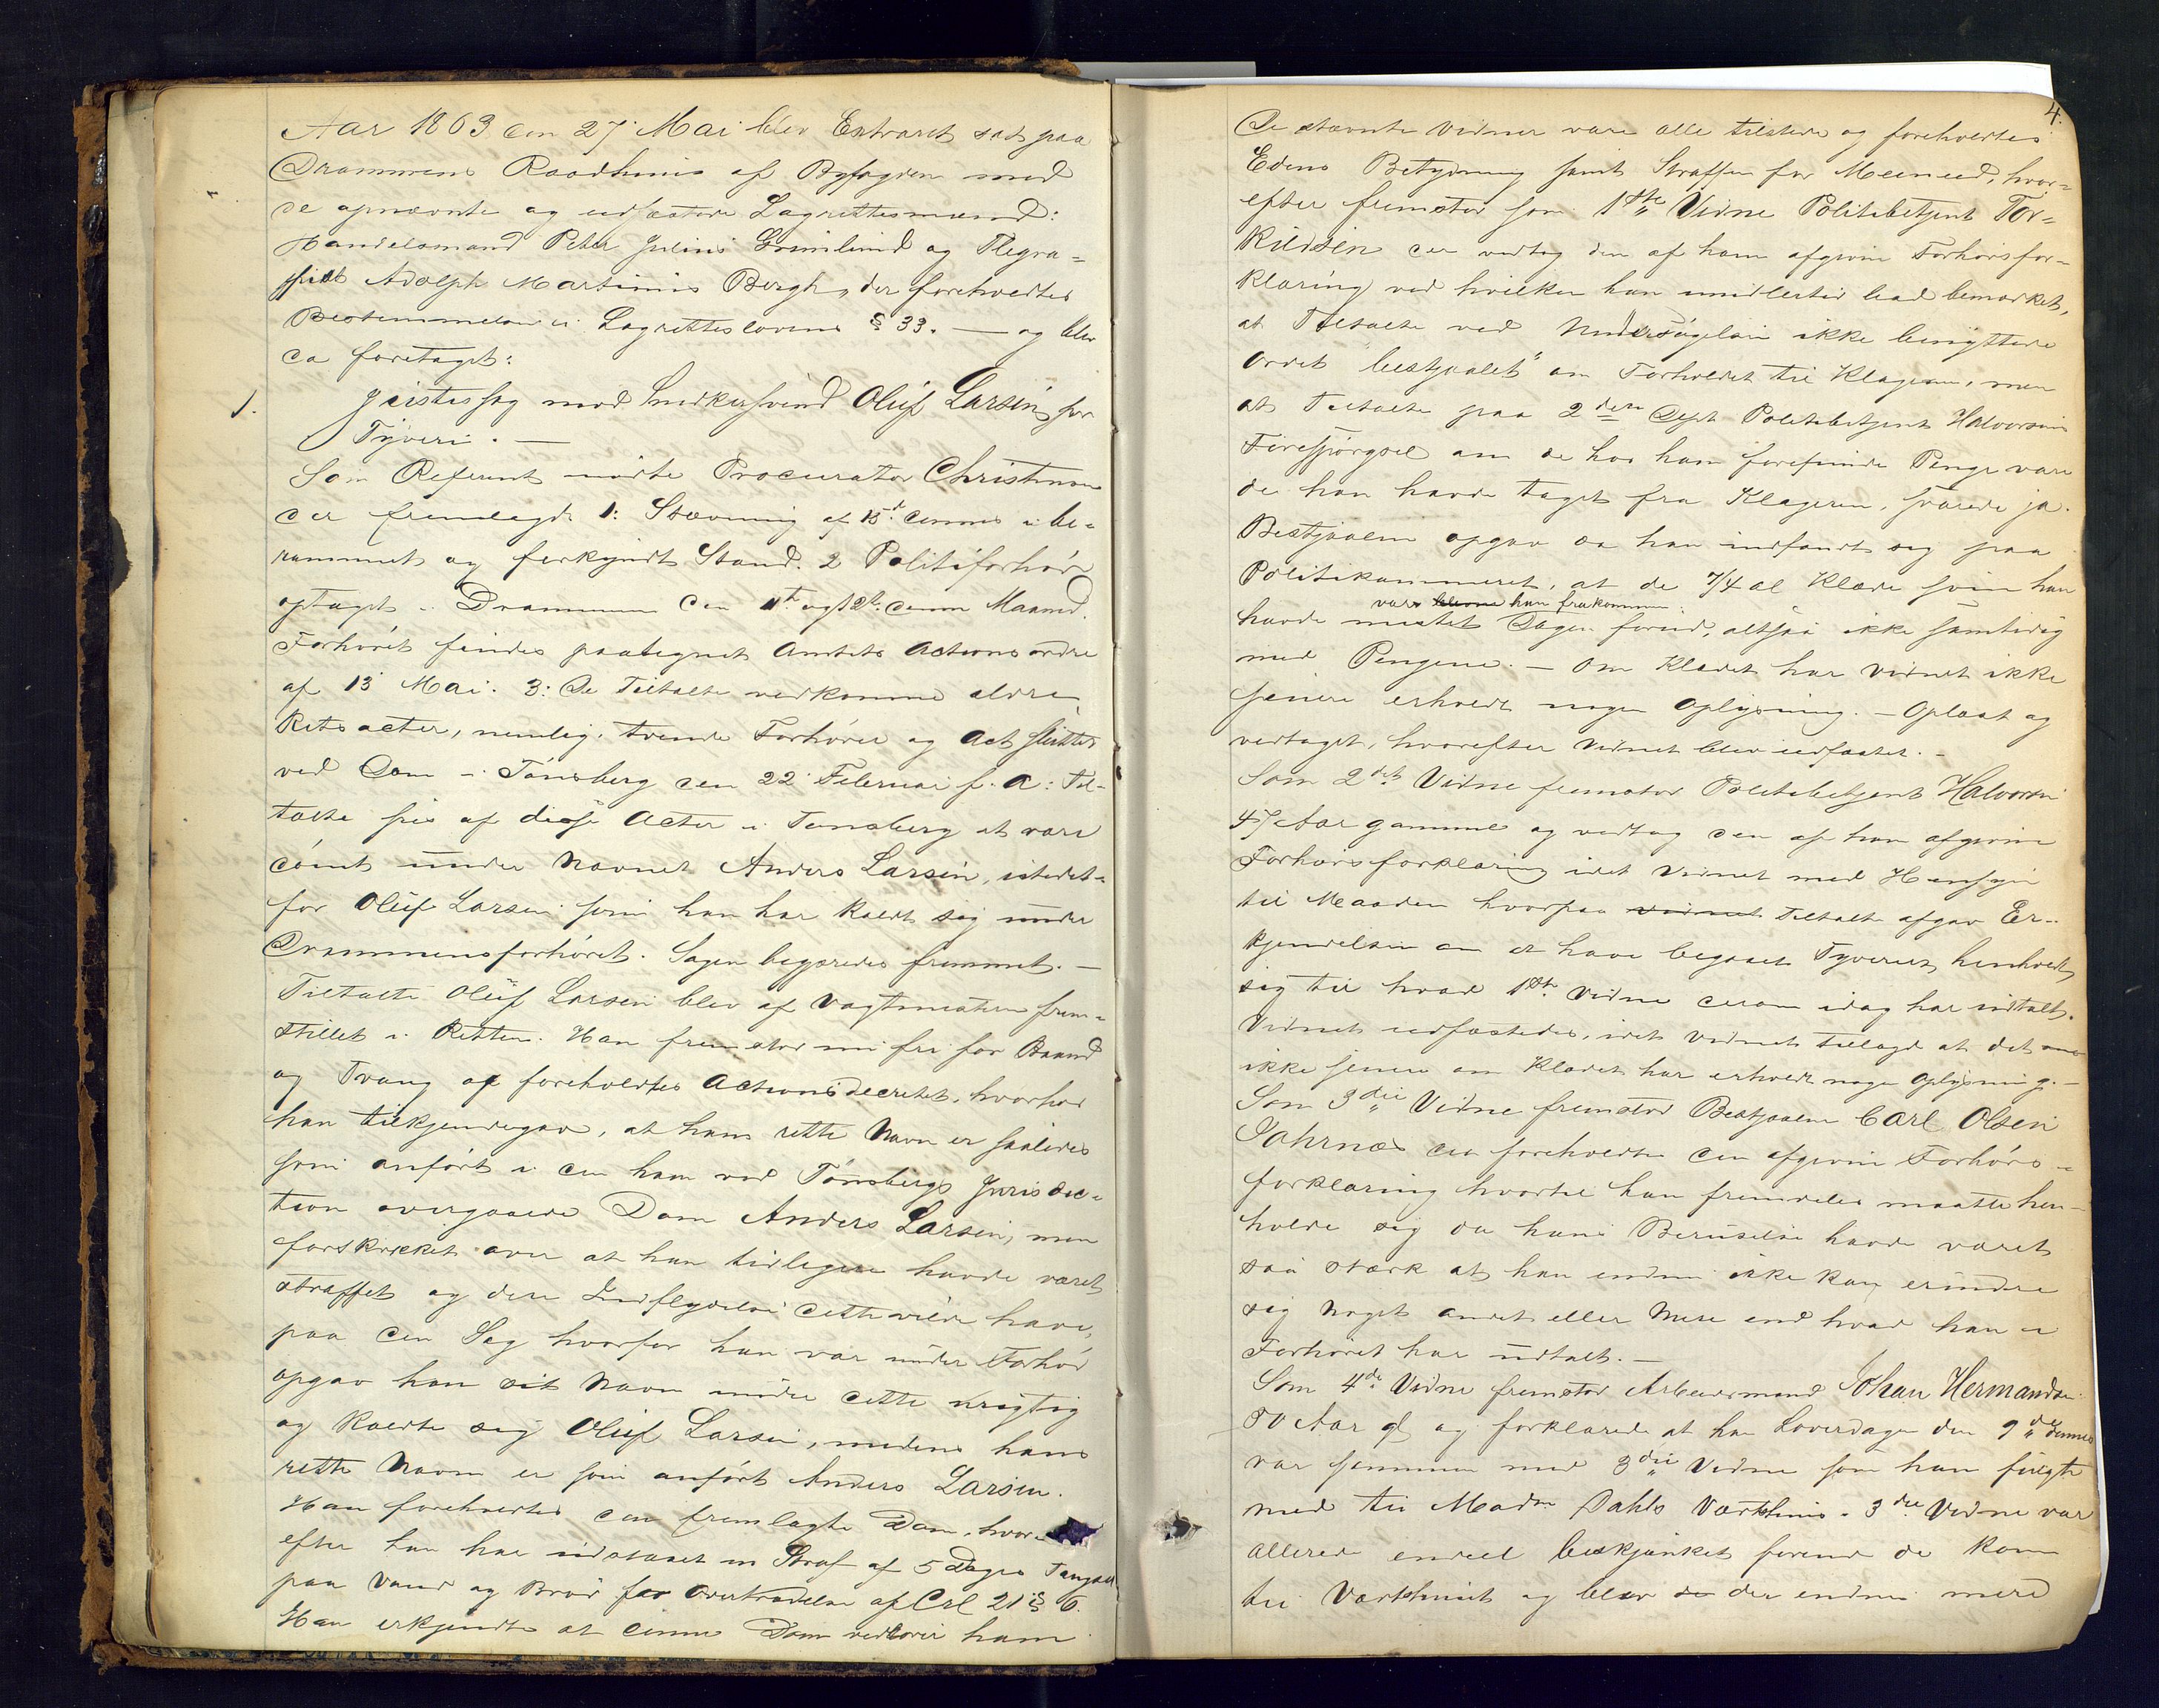 Aar 1863 den 27 Mai blev Extraret sat paa
Drammens Raadhuus af Byfogden med
de opnævnte og edfæstede Lagrettesmænd:
Handelsmand Peter Julius Grimlund og Flegra=
Adolph Martinius Bergh, der foreholdtes
Bestemmelsen i Lagretteslovens § 33. — og blev
da foretaget:
1. Justitssag mod Snedkersvend Oluf Larsen for
Tyveri. —
Som Referent mødte Procurator Christensen
der fremlagde 1: Stævning af 15d. dennes i be=
rammet og forkyndt Stand. 2 Politiforhør
optaget i Drammen den 11te og 12te denne Maaned.
Forhøret findes paategnet Amtets Actionsordre
af 13 Mai. 3: De Tiltalte vedkomme ældre
Retsacter, nemlig: tvende Forhører og Act sluttet
ved Dom i Tønsberg den 22 Februar f. A: Til=
talte sees af disse Acter i Tønsberg at være
dømt under Navnet Anders Larsen, istedet=
for Oluf Larsen som han har kaldt sig under
Drammensforhøret. Sagen begjæredes fremmet. —
Tiltalte Oluf Larsen blev af Vagtmesteren frem=
stillet i Retten. Han fremstod nu fri for Baand
og Tvang og foreholdtes Actionsdecretet, hvorhos
han tilkjendegav, at hans rette Navn er saaledes
som anført i den ham ved Tønsbergs Jurisdic=
tion overgaaede Dom Anders Larsen, men
forskrækket over at han tidligere havde været
straffet og den Indflydelse dette vilde have,
paa den Sag hvorfor han var under Forhør
opgav han sit Navn under dette urigtig
og kaldte sig Oluf Larsen, medens hans
rette Navn er som anført Anders Larsen.
Han foreholdtes den fremlagte Dom, hvor=
efter han har udstaaet en Straf af 5 Dages Fængsel
paa Vand og Brød for Overtrædelse af Crl 21 § 6.
Han erkjendte at denne Dom vedkom ham
4.
De stævnte Vidner vare alle tilstede og foreholdtes
Edens Betydning samt Straffen for Meeneed, hvor=
efter fremstod som 1ste Vidne Politibetjent Tor=
kildsen der vedtog den af ham afgivne Forhørsfor=
klaring ved hvilken han imidlertid bad bemærket,
at Tiltalte ved Undersøgelsen ikke benyttede
Ordet "bestjaalet" om Forholdet til Klageren, men
at Tiltalte paa 2det Dept Politibetjent Halvorsens
Forespørgsel om de hos ham forefundne Penge vare
de han havde taget fra Klageren, svarede ja.
Bestjaalne opgav da han indfandt sig paa
Politikammeret, at de 7/4 al Klæde som han
var blevne ham frakommen
havde mistet Dagen forud, altsaa ikke samtidig
med Pengene. — Om Klædet har Vidnet ikke
senere erholdt nogen Oplysning. — Oplæst og
vedtaget, hvorefter Vidnet blev edfæstet. —
Som 2det Vidne fremstod Politibetjent Halvorsen
47 Aar gammel og vedtog den af ham afgivne
Forhørsforklaring idet Vidnet med Hensyn
til Maaden hvorpaa vidnet Tiltalte afgav Er=
kjendelsen om at have begaaet Tyveriet, henholdt
sig til hvad 1ste Vidne derom idag har udtalt.
Vidnet edfæstedes, idet Vidnet tillagde at det
ikke senere om Klædet har erholdt nogen Oplysning. —
Som 3die Vidne fremstod Bestjaalne Carl Olsen
Jahrnæs der foreholdtes den afgivne Forhørs=
forklaring hvortil han fremdeles maatte hen=
holde sig da hans Beruselse havde været
saa stærk at han endnu ikke kan erindre
sig noget andet eller mere end hvad han i
Forhøret har udtalt. —
Som 4de Vidne fremstod Arbeidsmand Johan Hermandsen
50 Aar gl og forklarede at han Løverdagen den 9de dennes
var sammen med 3die Vidne som han fulgte
med til Madm Dahls Værtshuus. 3die Vidne var
allerede endeel beskjænket førend de kom
til Værtshuset og blev de der endnu mere